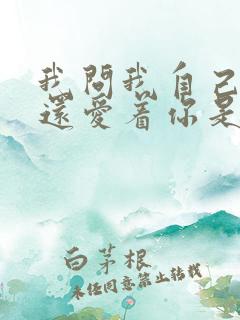 我問我自己
還愛着你是
白茅根
未经同意禁止转载